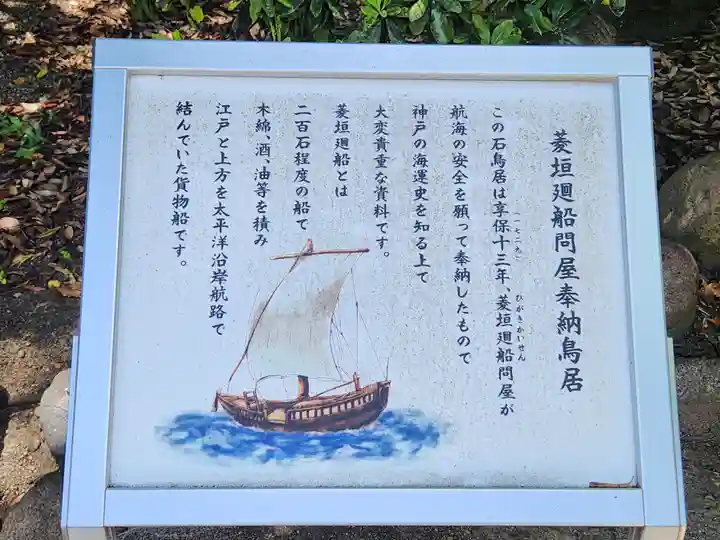 菱垣廻船問屋奉納鳥居
この石鳥居は享保十三年、菱垣廻船問屋が
(一七二九)
ひがきかいせん
航海の安全を願って奉納したもので
神戸の海運史を知る上て
大変貴重な資料です。
菱垣廻船とは
二百石程度の船で
木綿、酒、油等を積み
江戸と上方を太平洋沿岸航路で
結んでいた貨物船です。